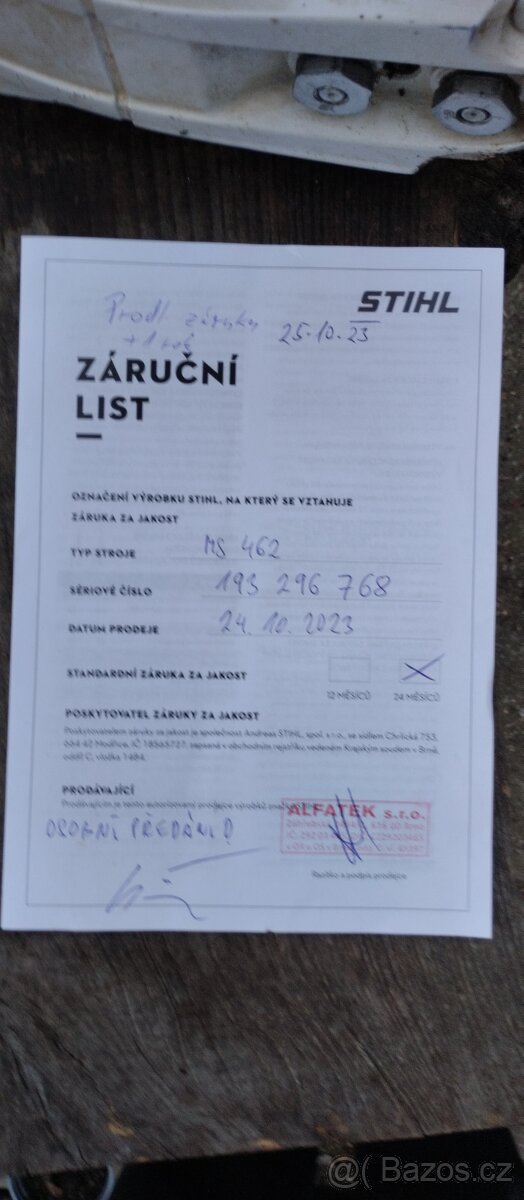 STIHL
Prodl. záruky
+ 1 rok
25.10.23
ZÁRUČNÍ
LIST
OZNAČENÍ VÝROBKU STIHL, NA KTERÝ SE VZTAHUJE
ZÁRUKA ZA JAKOST
TYP STROJE MS 462
SÉRIOVÉ ČÍSLO 193 296 768
DATUM PRODEJE 24.10.2023
STANDARDNÍ ZÁRUKA ZA JAKOST
12 MĚSÍCŮ 24 MĚSÍCŮ
POSKYTOVATEL ZÁRUKY ZA JAKOST
Poskytovatelem záruky za jakost je společnost Andreas STIHL, spol. s r.o., se sídlem Chrlická 753,
664 42 Modřice, IČ 18565727, zapsaná v obchodním rejstříku vedeném Krajským soudem v Brně,
oddíl C, vložka 1484.
PRODÁVAJÍCÍ
Prodávajícím je tento autorizovaný prodejce výrobků
OSOBNÍ PŘEDÁNÍ
ALFATEK s.r.o.
Razítko a podpis prodejce
@( Bazos.cz